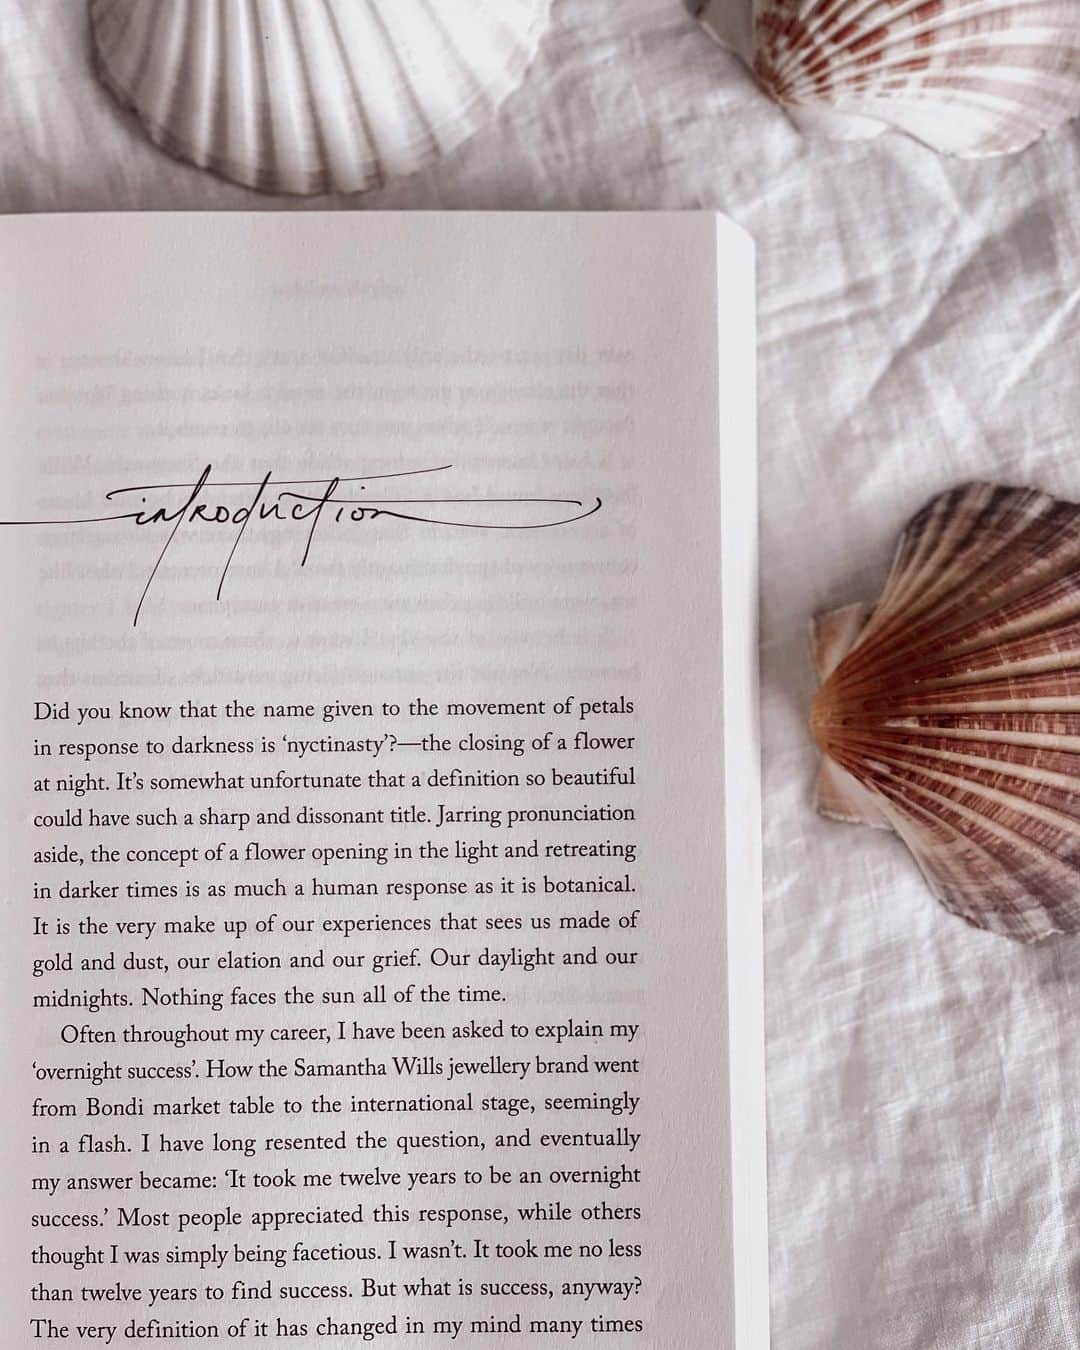 introduction
Did you know that the name given to the movement of petals
in response to darkness is ‘nyctinasty’?—the closing of a flower
at night. It’s somewhat unfortunate that a definition so beautiful
could have such a sharp and dissonant title. Jarring pronunciation
aside, the concept of a flower opening in the light and retreating
in darker times is as much a human response as it is botanical.
It is the very make up of our experiences that sees us made of
gold and dust, our elation and our grief. Our daylight and our
midnights. Nothing faces the sun all of the time.
Often throughout my career, I have been asked to explain my
‘overnight success’. How the Samantha Wills jewellery brand went
from Bondi market table to the international stage, seemingly
in a flash. I have long resented the question, and eventually
my answer became: ‘It took me twelve years to be an overnight
success.’ Most people appreciated this response, while others
thought I was simply being facetious. I wasn’t. It took me no less
than twelve years to find success. But what is success, anyway?
The very definition of it has changed in my mind many times